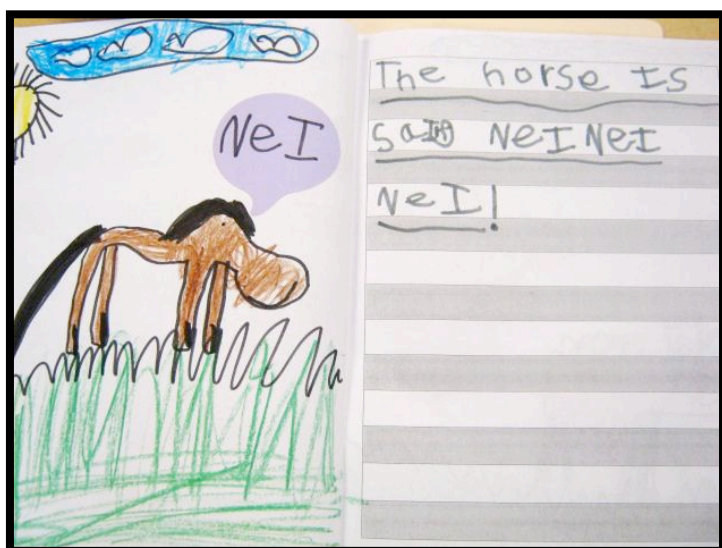 NeI
The horse IS
saID NeI NeI
NeI!